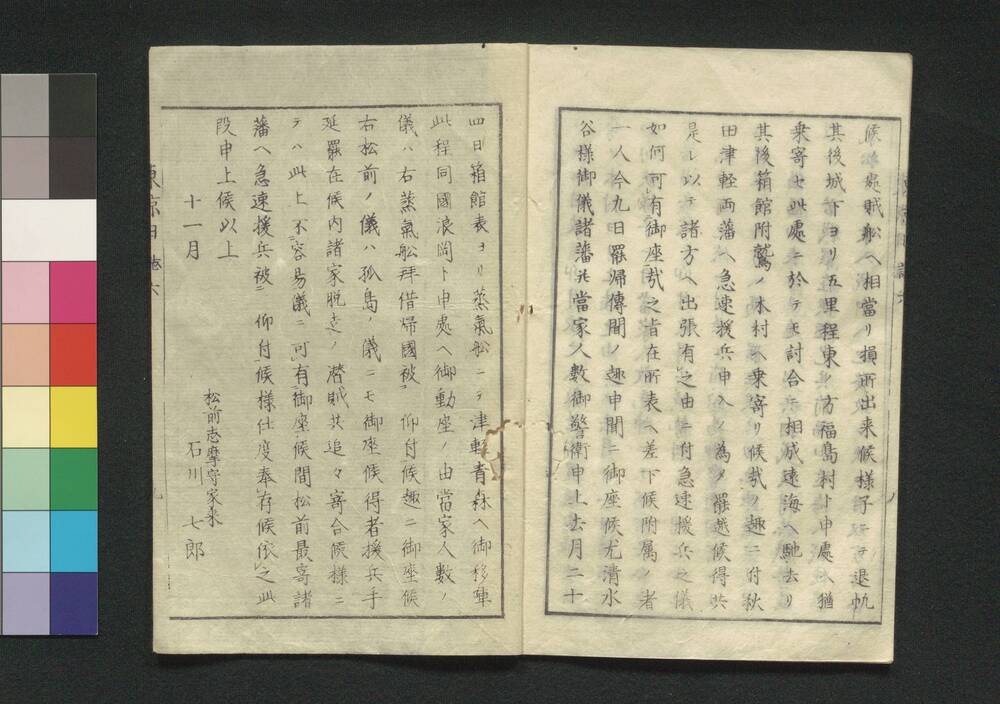 候處賊船ヘ相當リ損所出来候様子ニテ退帆
其後城下ヨリ五里程東ノ方福島村ト申處ヘ猶
乗寄セ此處ニ於テモ討合ニ相成遠海ヘ馳去リ
其後箱館附鷲ノ木村ヘ乗寄リ候哉ノ趣ニ付秋
田津軽両藩ヘ急速援兵申入ノ為メ罷越候得共
是レ以テ諸方ヘ出張有之由ニ付急速援兵之儀
如何可有御座哉之旨在所表ヘ差下候附属ノ者
一人今九日罷帰傳聞ノ趣申聞ニ御座候尤清水
谷様御儀諸藩共當家人數御警衛申上去月二十
四日箱館表ヨリ蒸氣船ニテ津軽青森ヘ御移陣
此程同國浪岡ト申處ヘ御動座ノ由當家人數ノ
儀ハ右蒸氣船拝借帰國被仰付候趣ニ御座候
右松前ノ儀ハ孤島ノ儀ニモ御座候得者援兵手
延罷在候内諸家脱走ノ潜賊共追々寄合候様ニ
テハ此上不容易儀ニ可有御座候間松前最寄諸
藩ヘ急速援兵被仰付候様仕度奉存候依之此
段申上候以上
十一月
松前志摩守家来
石川七郎